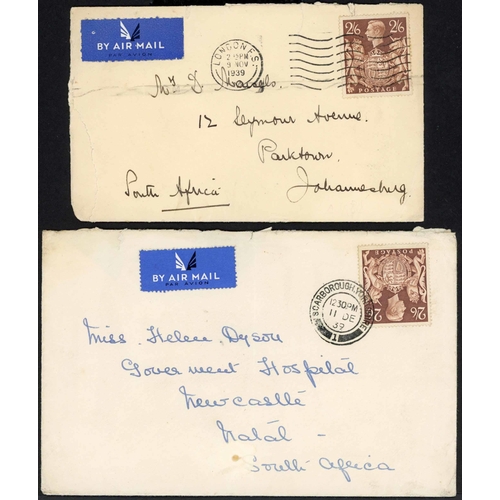 BY AIR MAIL
PAR AVION
LONDON F.S.
2 PM
8 NOV
1939
2/6 2/6
POSTAGE
Mrs D.
12 Seymour Avenue.
Parktown.
South Africa
Johannesburg.
BY AIR MAIL
PAR AVION
SCARBOROUGH, YORKSHIRE
12 30PM
11 DE
39
1
2/6
Miss. Helen Dyson
Government Hospital
Newcastle
Natal -
South Africa